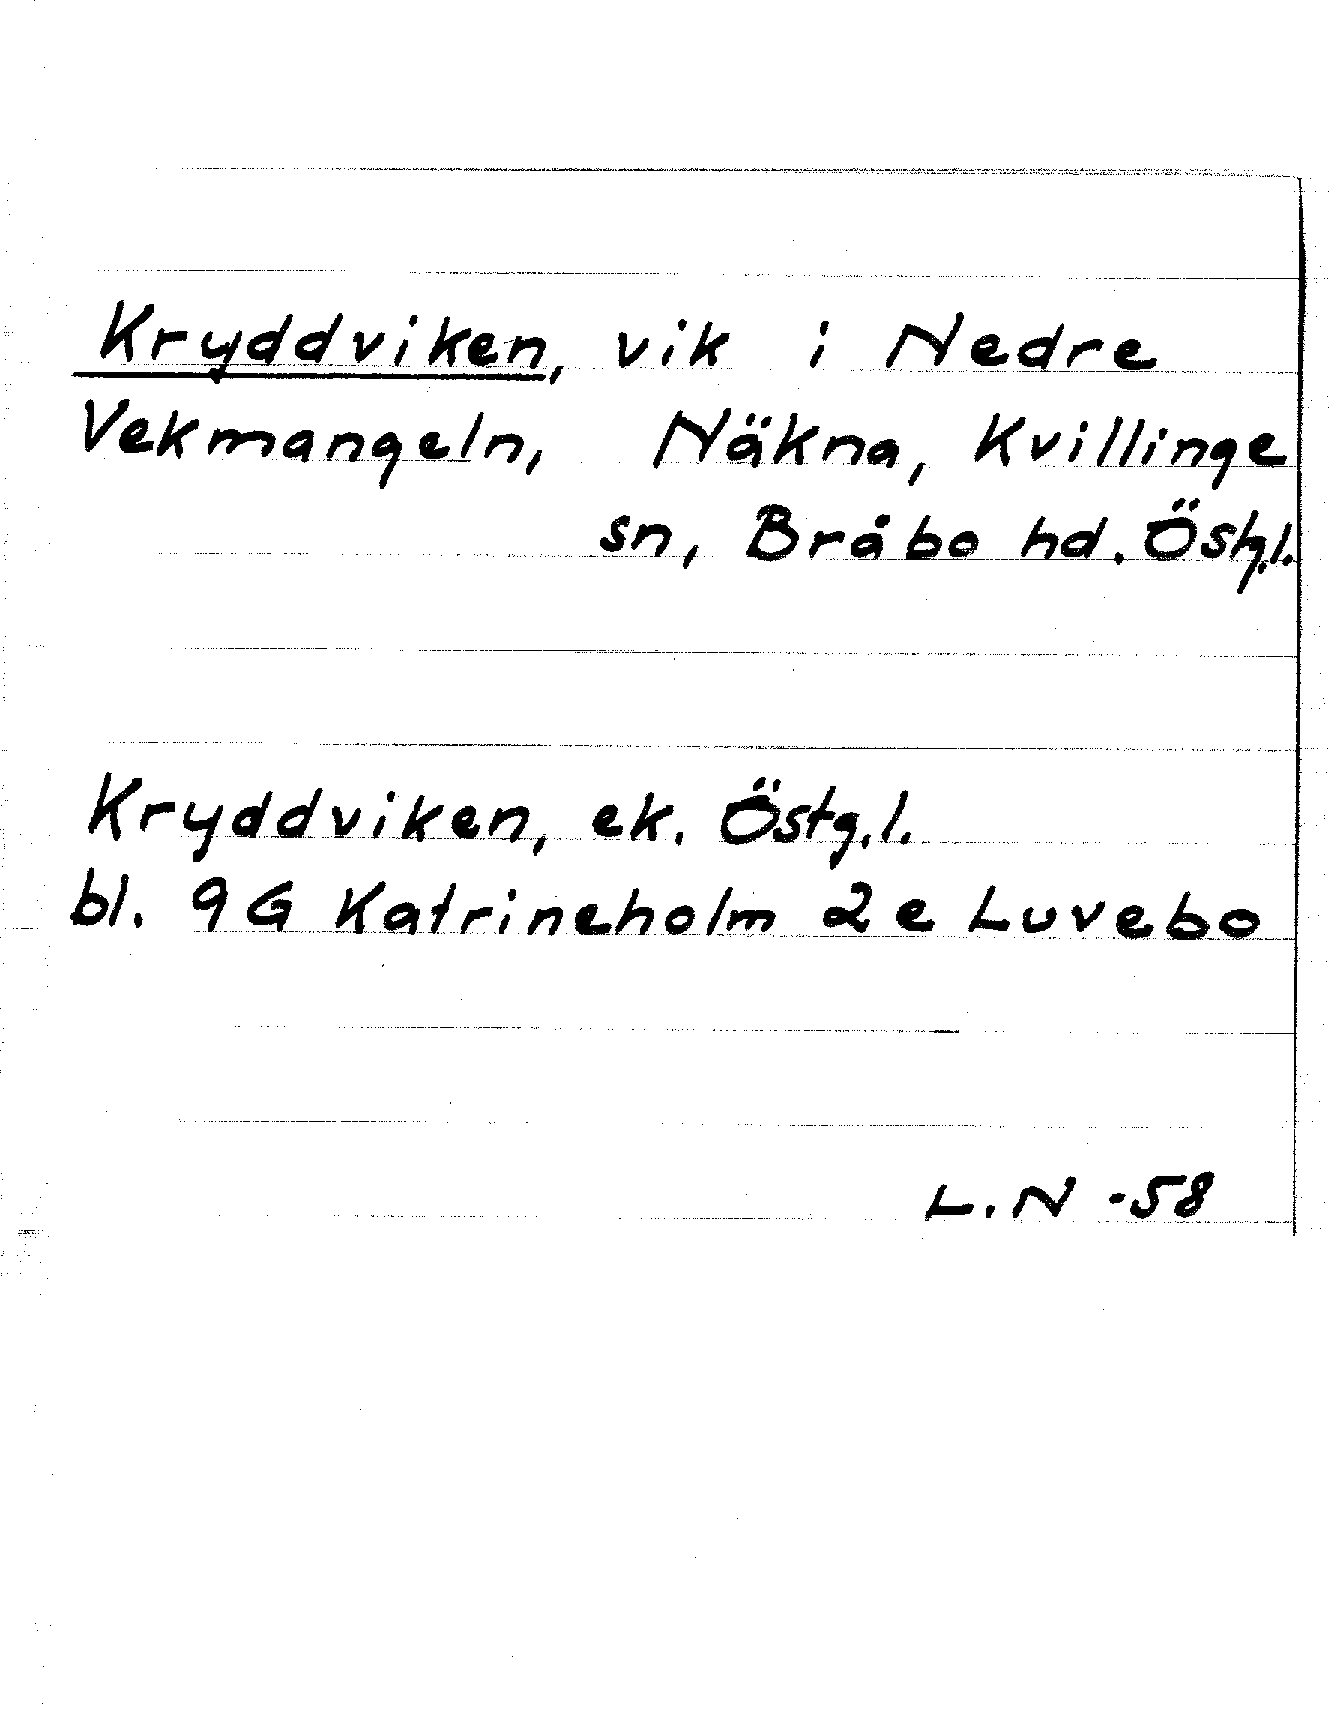 Kryddviken, vik i Nedre
Vekmangeln, Näkna, Kvillinge
sn, Bråbo hd. Östg.l.
Kryddviken, ek. Östg.l.
bl. 9G Katrineholm 2e Luvebo
L.N -58